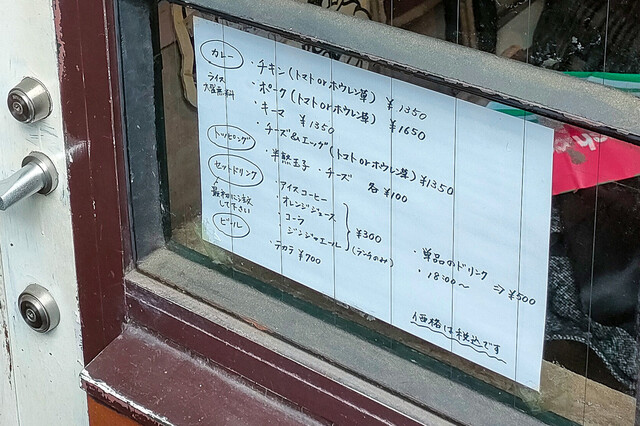 カレー
ライス大盛無料
・チキン(トマト or ホウレン草) ¥1350
・ポーク(トマト or ホウレン草) ¥1650
・キーマ ¥1350
・チーズ&エッグ(トマト or ホウレン草) ¥1350
トッピング
・半熟玉子 ・チーズ 各¥100
セットドリンク
最初に注文して下さい
・アイスコーヒー
・オレンジジュース
・コーラ
・ジンジャエール
¥300
(ランチのみ)
ビール
・デカラ ¥700
・単品のドリンク
・18:00〜
⇒ ¥500
価格は税込です